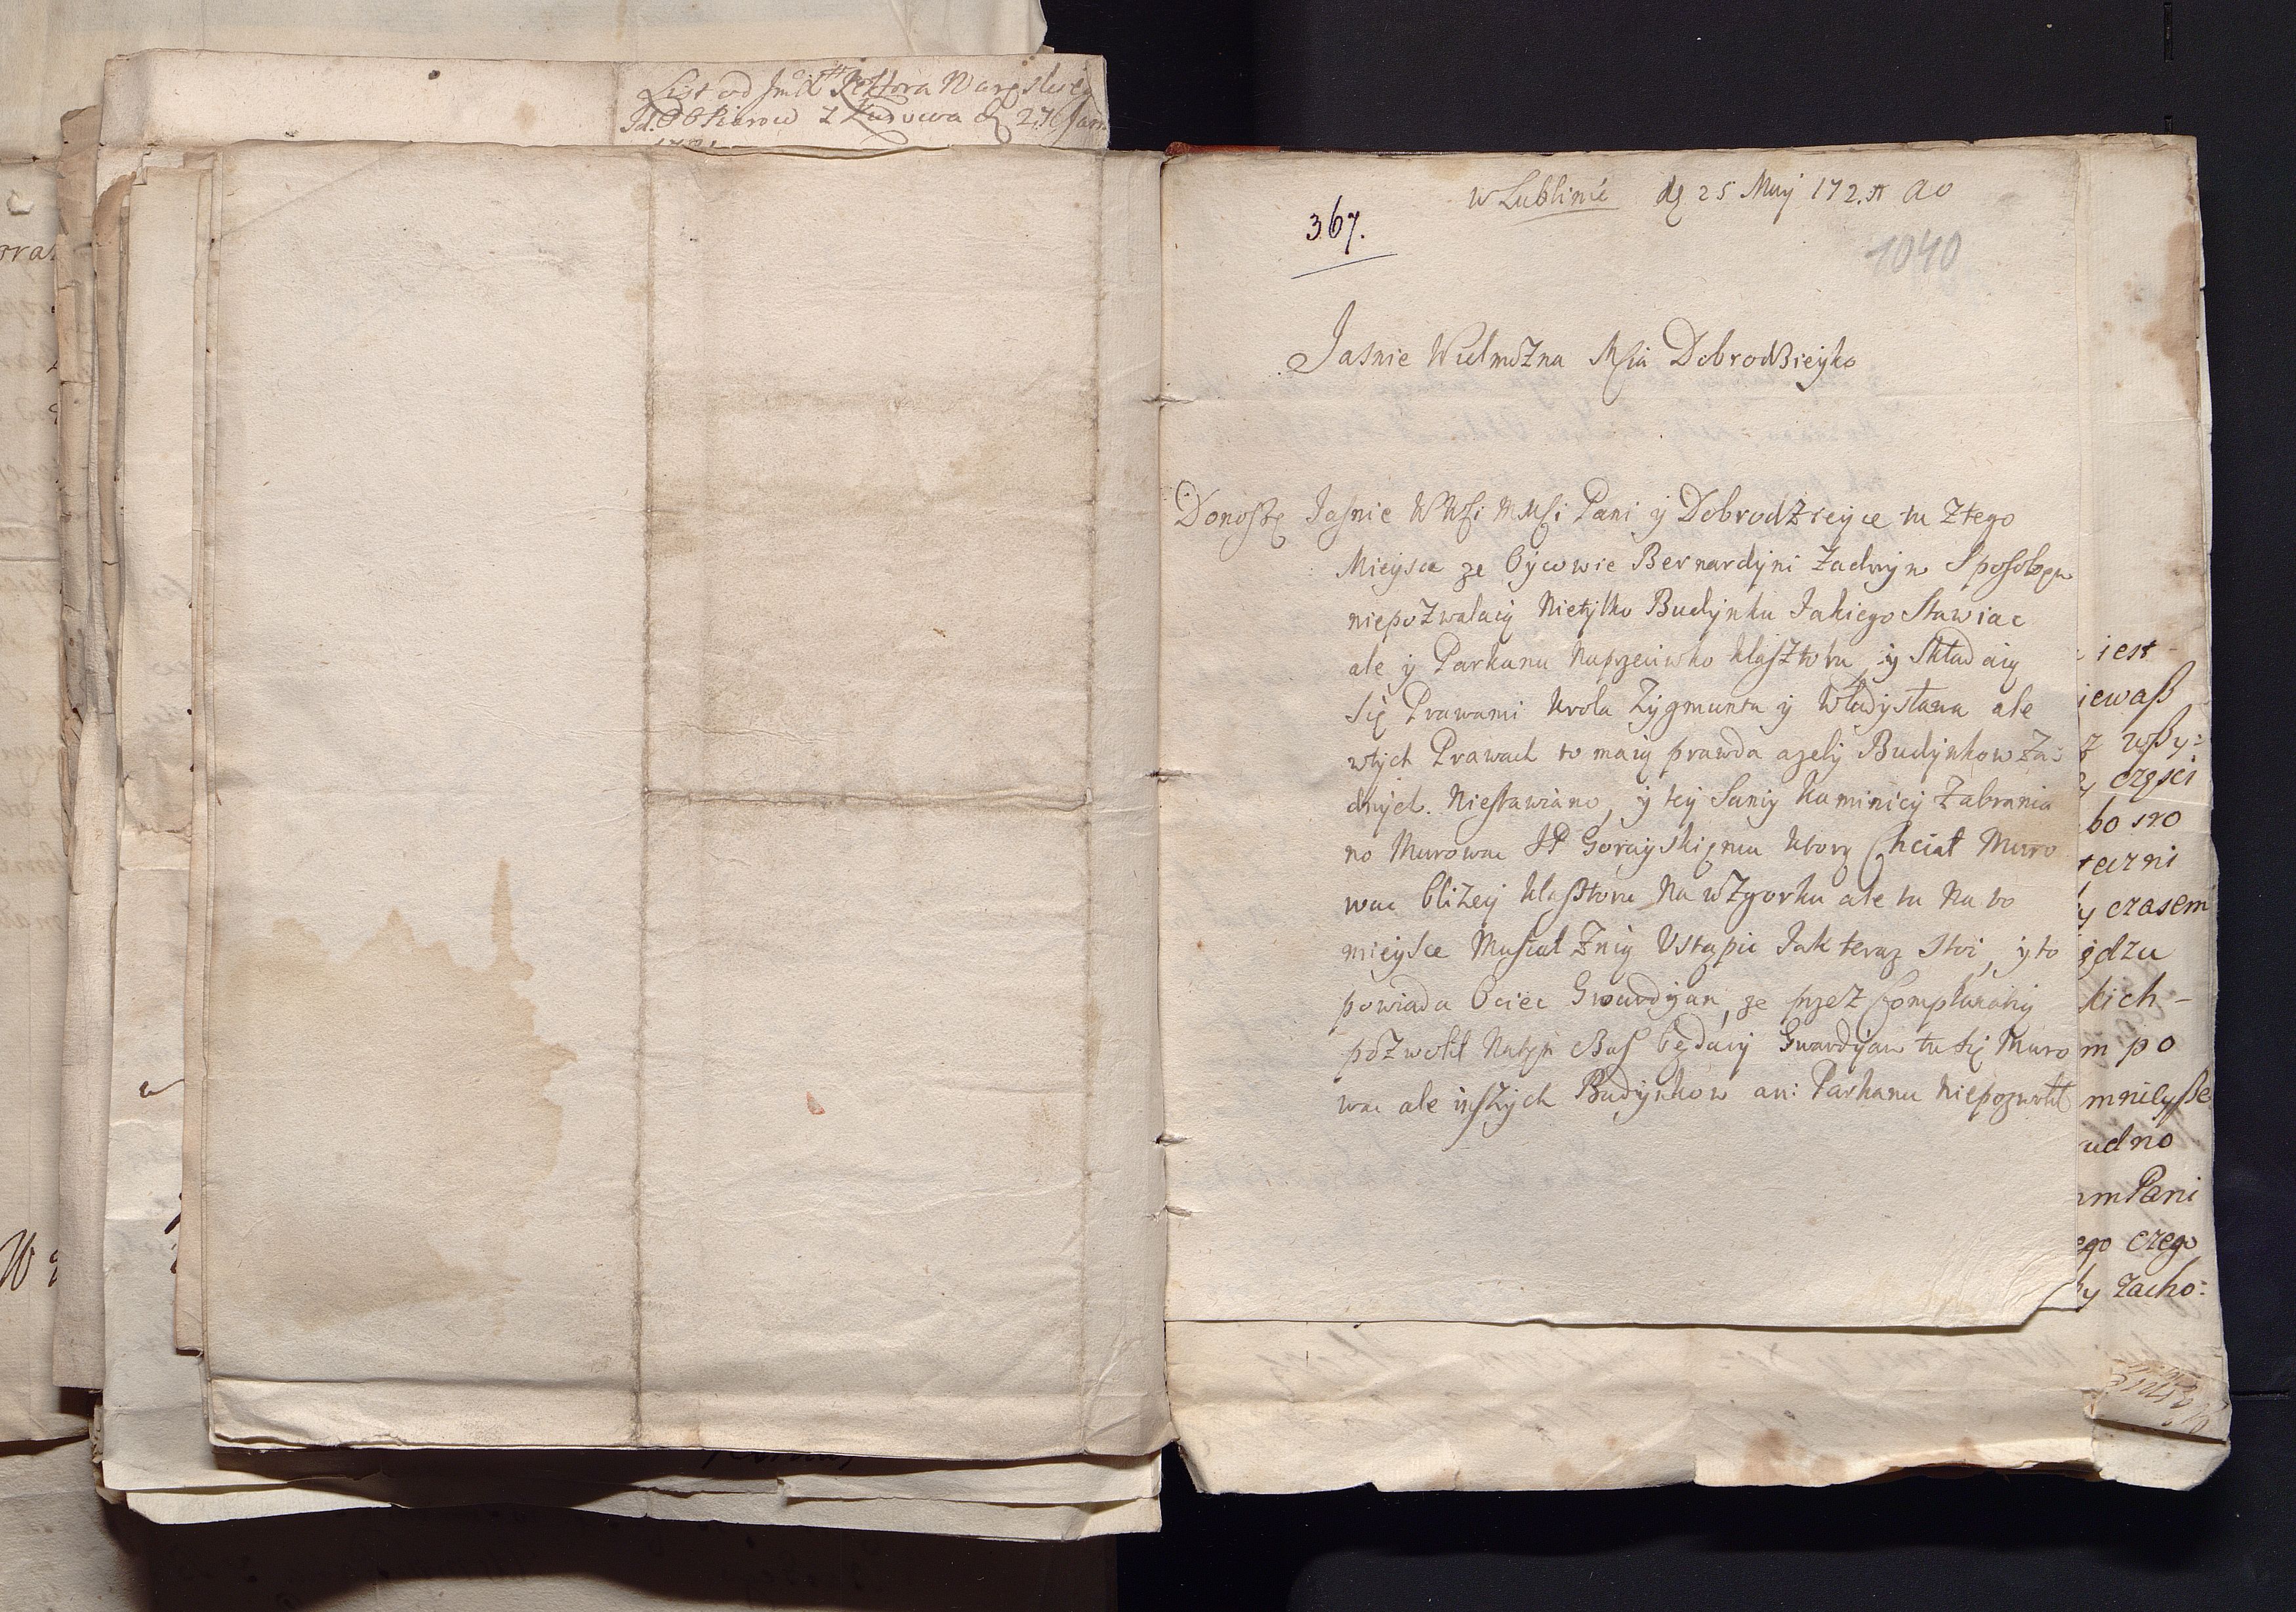 List od Jmći Rektora Warężskieg
Id. OO Piarow z
w Lublinie dg 25 Maij 172. Ao
367.
1040
Jasnie Wielmozna Msia Dobrodzieyko
Donoszę Jasnie WMsi MMsi Pani y Dobrodzieyce tu z tego
Mieysca ze Oycowie Bernardyni zadnym Sposobem
niepozwalaią Nietylko Budynku Jakiego Stawiac
ale y Parkanu Naprzeciwko klasztoru, y Składaią
się Prawami krola Zygmunta y Władysława ale
wtych Prawach to maią prawda azeby Budynkow Za:
dnych. Niestawiano, y tey Samy kaminicy Zabrania
no Murowac JP Gorayskięmu ktory Chciał Muro
wac blizey klasztoru Na wzgorku ale tu Na to
mieysce Musiał Znią Ustąpic Jak teraz Stoi, y to
powiada Ociec Gwardyan, ze przez
pozwolił Natęn czas będący Gwardyan tu Się Muro
wac ale inszych Budynkow ani Parkanu Niepozwolił
iest
iewaß
z wßy:
części
bo sro
teczni
y czasem
ędzu
kich-
m po
mnieyße
udno
m Pani
ego czego
y zacho: